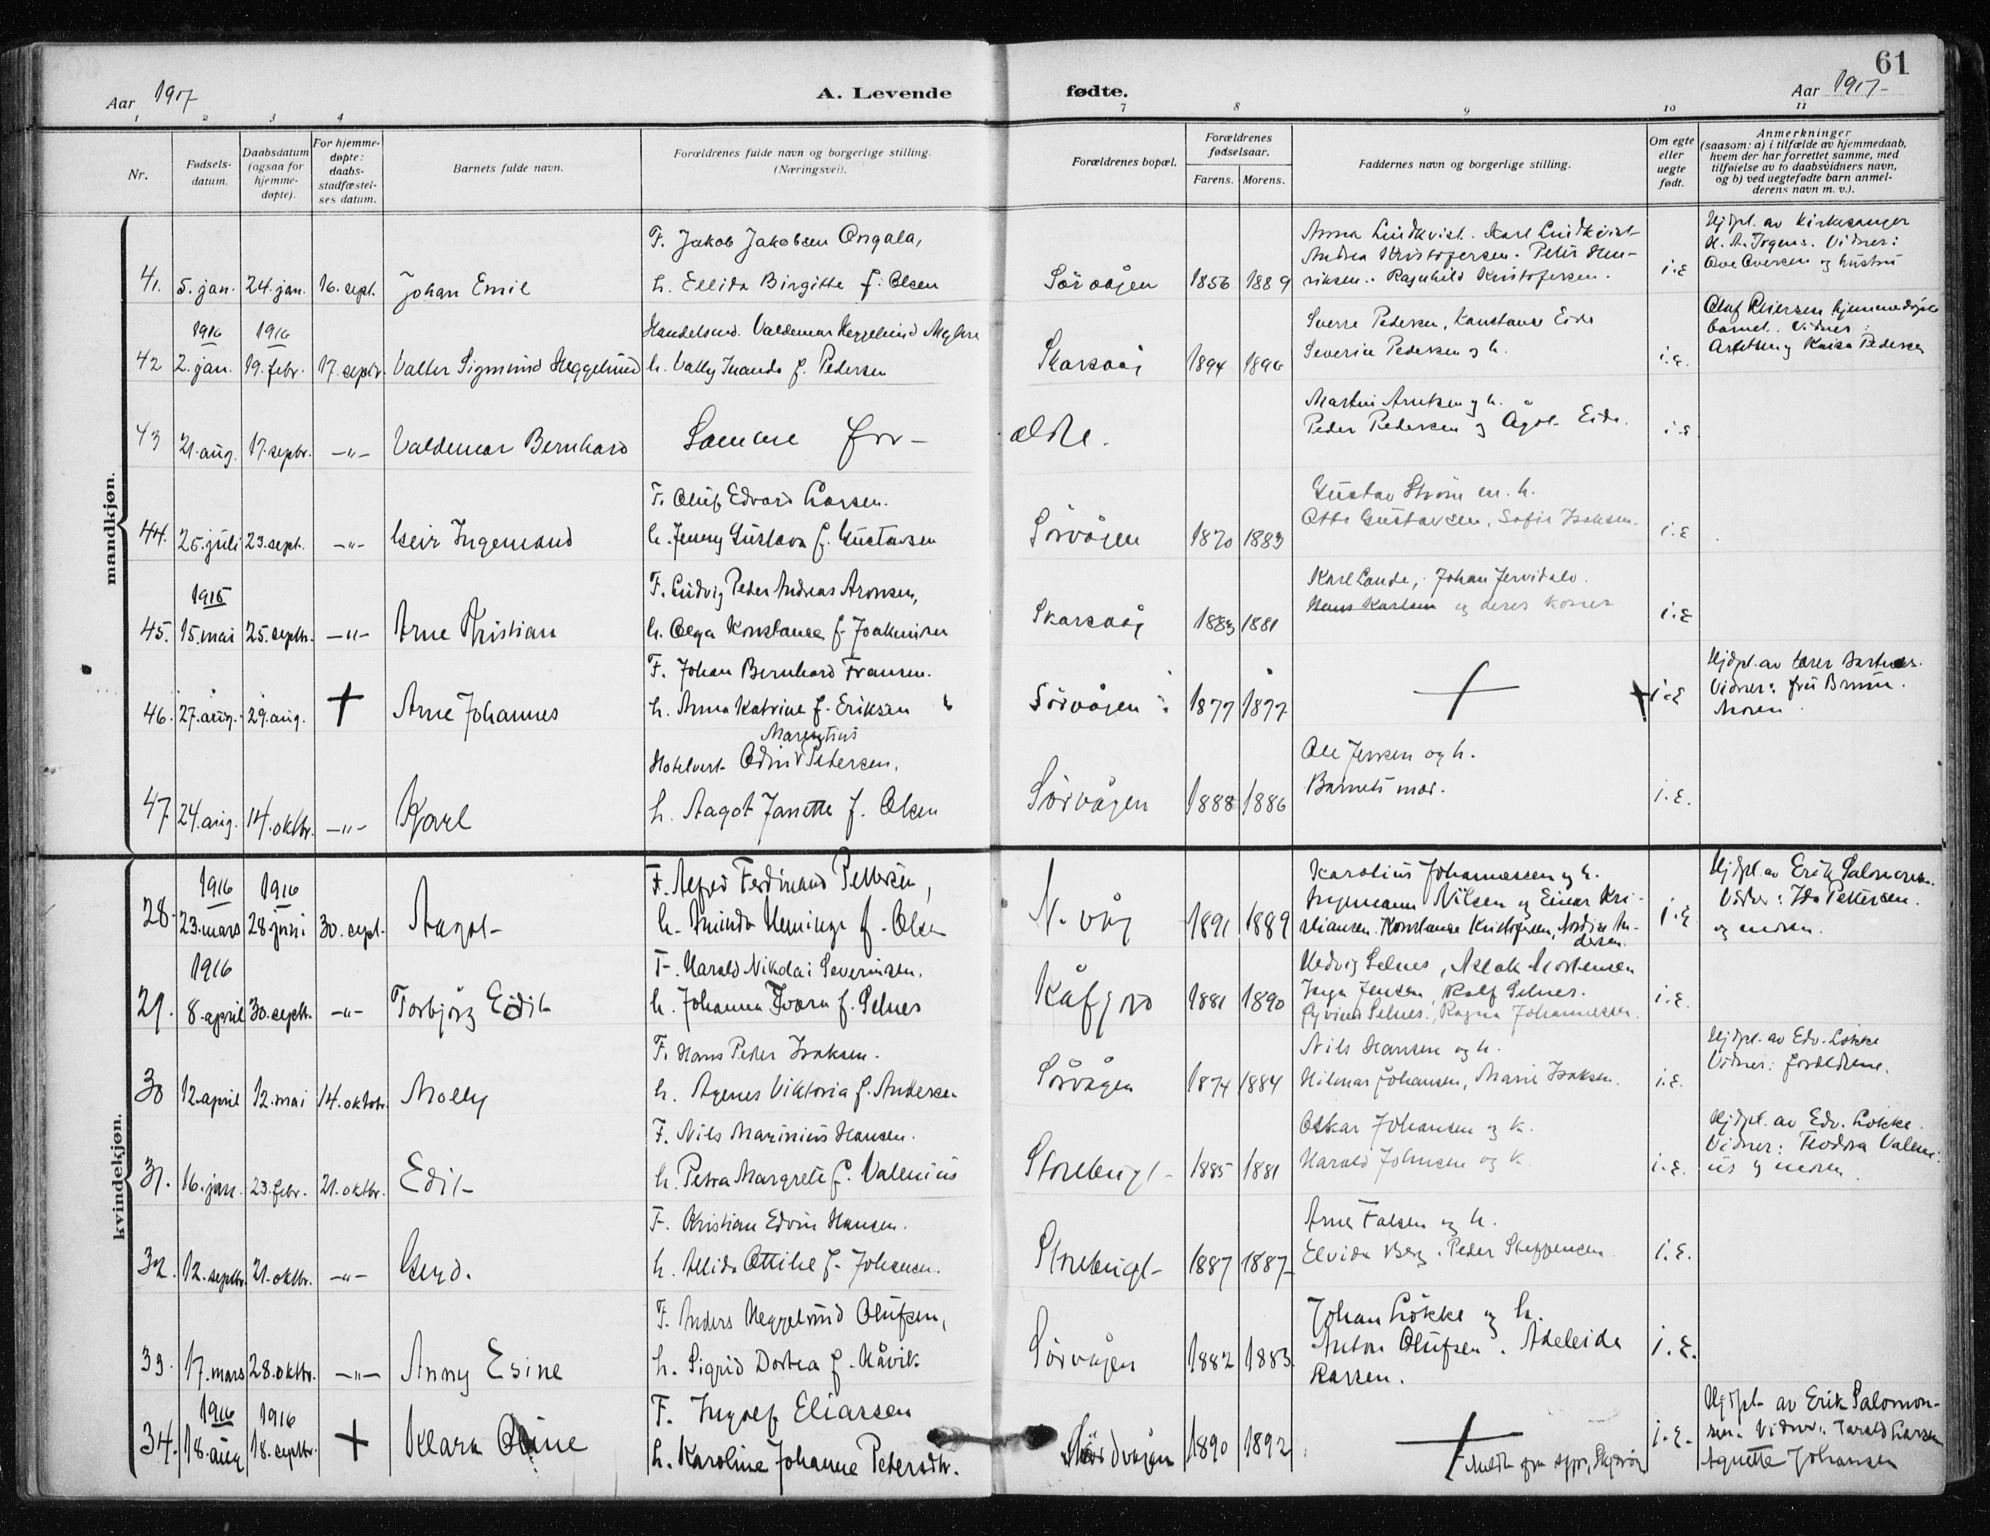 61
Aar 1917
A. Levende fødte.
Aar 1917
1 2 3 4 7 8 9 10 11
Nr.
Fødsels-
datum.
Daabsdatum
(ogsaa for
hjemme-
døpte).
For hjemme-
døpte:
daabs-
stadfæstel-
ses datum.
Barnets fulde navn.
Forældrenes fulde navn og borgerlige stilling.
(Næringsvei).
Forældrenes bopæl.
Forældrenes
fødselsaar.
Farens. Morens.
Faddernes navn og borgerlige stilling.
Om egte
eller
uegte
født.
Anmerkninger
(saasom: a) i tilfælde av hjemmedaab,
hvem der har forrettet samme, med
tilføielse av to daabsvidners navn,
og b) ved uegtefødte barn anmel-
derens navn m. v.).
mandkjøn.
41. 5. jan. 24. jan. 16. sept. Johan Emil
F. Jakob Jakobsen Ongala,
h. Ellida Birgitte f. Olsen
Sørvågen 1856 1889
Anna Lindkvist. Karl Lindkvist
Andrea Kristofersen. Peter Hen-
riksen. Ragnhild Kristofersen.
i.E
Hjdpt. av Kirkesanger
Vidner:
Ove Oversen og hustru
1916 1916
42 2. jan. 19. febr. 17. septbr. Valter Sigmund Heggelund
Handelsmd. Valdemar Heggelund
h. Vally f. Pedersen
Skarsvåg 1894 1896
Sverre Pedersen, Konstanse Eide
Severin Pedersen og h.
i.e.
Olaf hjemmedøpte
barnet. Vidner:
og Kaisa Pedersen
43 21. aug. 17. septbr. -"- Valdemar Bernhard
Samme for-
ældre.
Martin Arntsen og h.
Peder Pedersen og Ågot Eide.
i.e
44. 25. juli 23. sept. -"- Geir Ingemand
F. Oluf Edvard Larsen.
h. Jenny Gustava f. Gustavsen
Sørvågen 1870 1883
Gustav Strøm m. h.
Otto Gustavsen, Sofie Isaksen.
i.E
1915
45. 15. mai 25. septbr. -"- Arne Kristian
F. Ludvig Peder Andreas Aronsen,
h. Olga Konstanse f. Joakimsen
Skarsvåg 1883 1881
Karl Lande, Johan
Hans Karlsen og deres koner
i.E
46. 27. aug. 29. aug. + Arne Johannes
F. Johan Bernhard Fransen.
h. Anna Katrine f. Eriksen
Sørvågen 1877 1877
+
i.E
Hjdpt. av lærer
Vidner: fru Bruun.
Moren.
47 24. aug. 14. oktbr. -"- Karl
Marentius
Hotelvert Odin Petersen.
h. Aagot Janette f. Olsen
Sørvågen 1888 1886
Ole Jensen og h.
Barnets mor.
i.E.
kvindekjøn.
1916 1916
28. 23. mars 28 juni 30. sept. Aagot
F. Alfred Ferdinand Pettersen,
h. Aminda f. Olsen
N. våg 1891 1889
Karolius Johannessen og h.
Ingemann Nilsen og Einar Kri-
stiansen. Konstanse Kristofersen, An-
dersen.
i.E
Hjdpt. av Erik Salomonsen.
Vidner: Ida Pettersen.
og moren.
1916
29. 8. april 30. septbr. -"- Torbjørg Edit
F. Harald Nikolai Severinsen.
h. Johanna f. Selnes
Kåfjord 1881 1890
Hedvig Selnes, Aslak Mortensen
Inga Jensen, Rolf Selnes.
Øyvind Selnes, Ragna Johannessen.
i.E.
30 12. april 12. mai 14. oktobr. Molly
F. Hans Peder Isaksen.
h. Agnes Viktoria f. Andersen
Sørvågen 1874 1884
Nils Hansen og h.
Hilmar Johansen, Marie Isaksen.
i.E.
Hjdpt. av Edv. Løkke
Vidner: forældrene.
31. 16. jan. 23. febr. 21. oktbr. Edit
F. Nils Marinius Hansen.
h. Petra Margrete f. Valenius
Storebugt 1885 1881
Oskar Johansen og h.
Harald Johnsen og h.
i.E.
Hjdpt. av Edv. Løkke.
Vidner: Teodora Valeni-
us og moren
32. 12. septbr. 21. oktbr. -"- Gerd.
F. Kristian Edvin Hansen.
h. Alida Ottilie f. Johansen.
Storebugt 1887 1887
Arne Falsen og h.
Elvida Berg. Peder Steffensen
i.E.
33. 17. mars 28. oktbr. -"- Anny Esine
F. Anders Heggelund Olufsen,
h. Sigrid Dortea f. Håvik
Sørvågen 1882 1883
Johan Løkke og h.
Anton Olufsen. Adeleide
Larsen.
i.E.
1916 1916
34. 18. aug 18. septbr. + Klara Oline
F. Ingolf Eliassen
h. Karoline Johanne Petersdtr.
Nordvågen 1890 1892
+
i.E.
Hjdpt. av Erik Salomon-
sen. Vidner: Larsen
Agnette Johansen